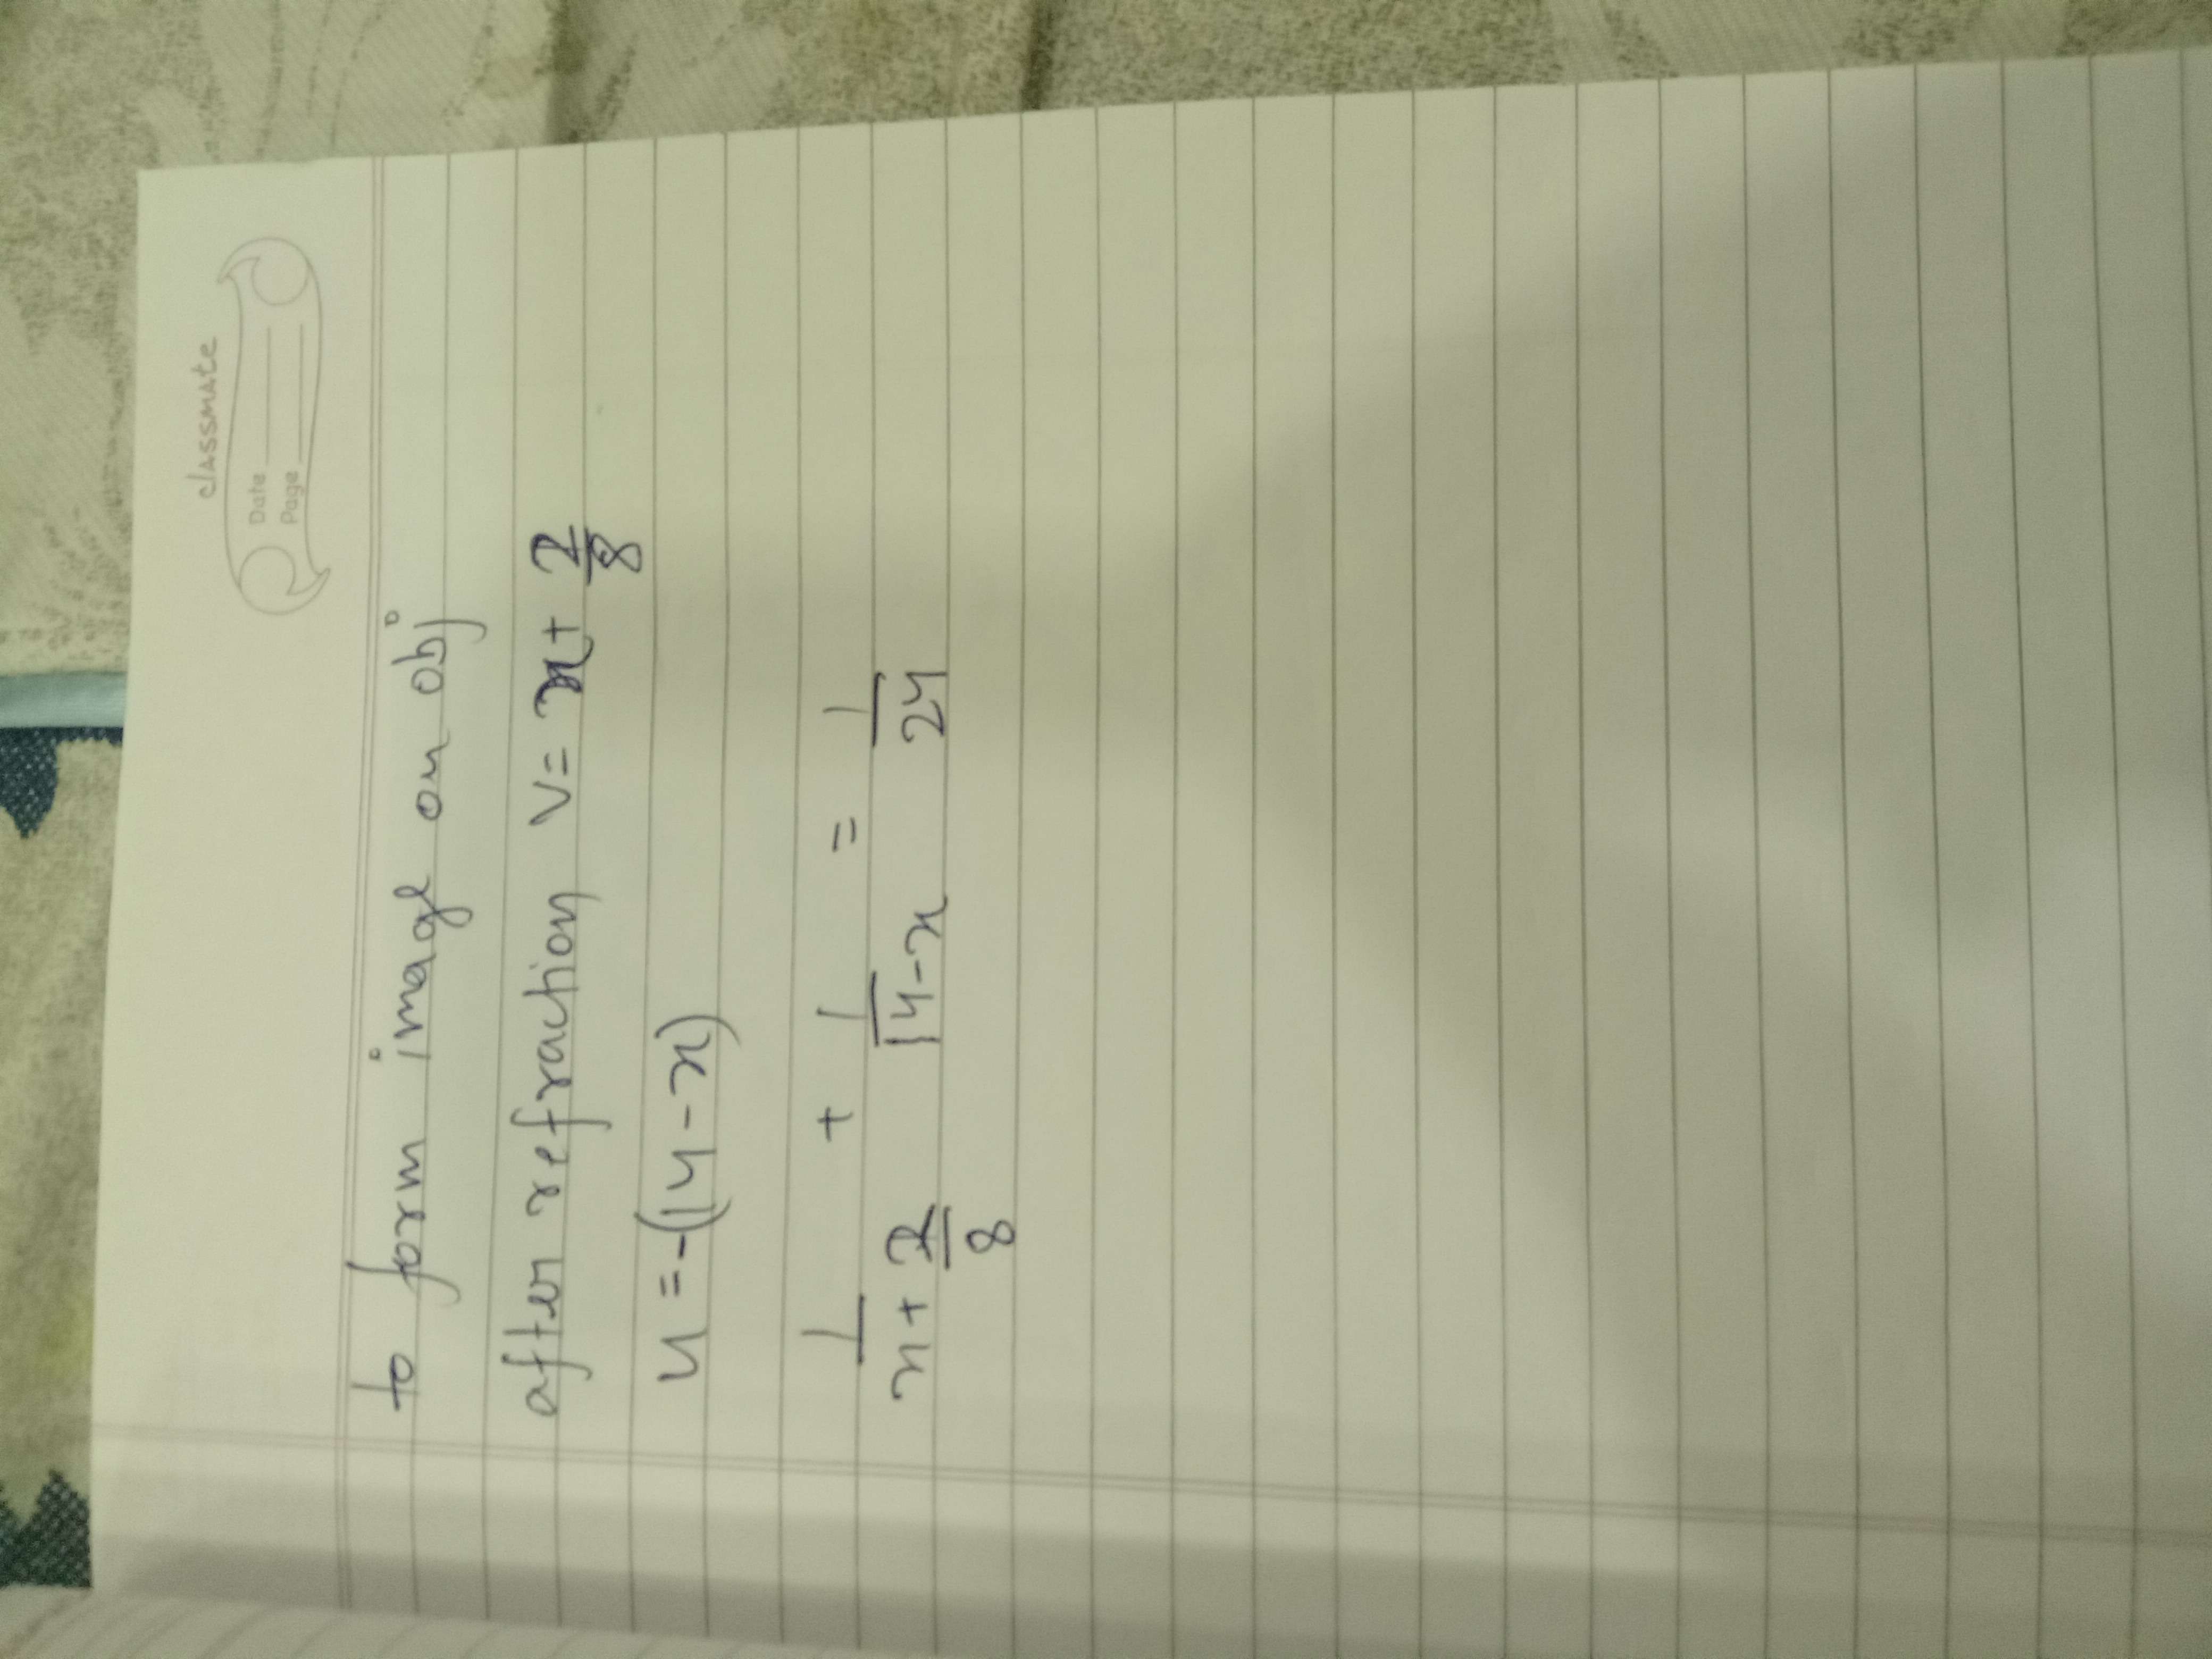 classmate
Date
Page
to form image on obj
after refraction v = x + x/8
u = -(14-x)
1/(x + x/8) + 1/(14-x) = 1/24